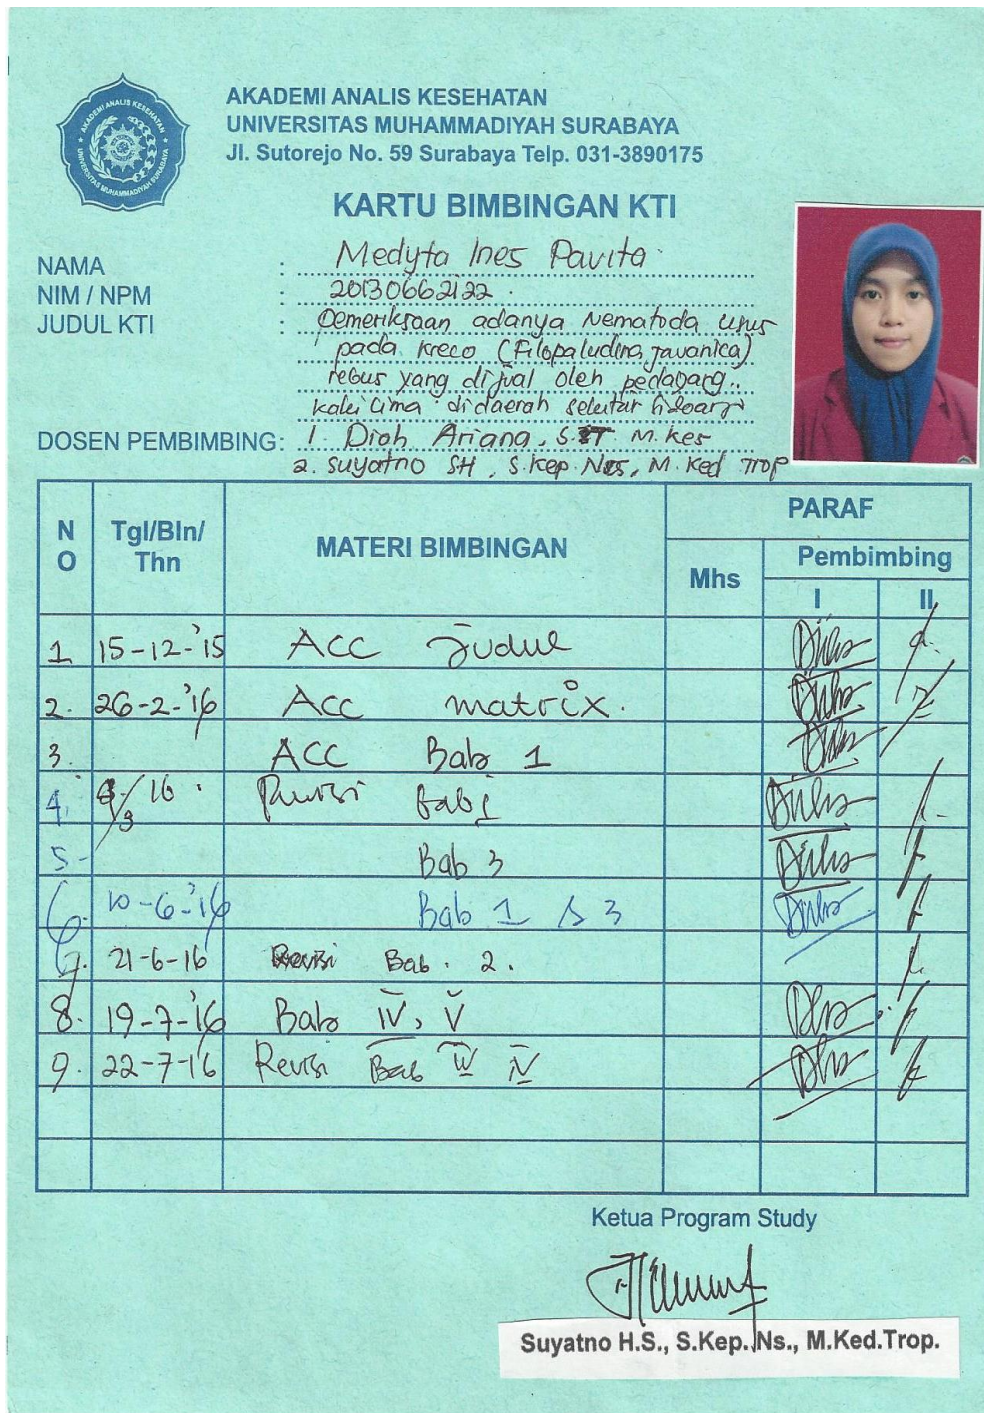 AKADEMI ANALIS KESEHATAN
UNIVERSITAS MUHAMMADIYAH SURABAYA
AKADEMI ANALIS KESEHATAN
UNIVERSITAS MUHAMMADIYAH SURABAYA
Jl. Sutorejo No. 59 Surabaya Telp. 031-3890175
KARTU BIMBINGAN KTI
NAMA : Medyta Ines Pavita
NIM / NPM : 20130662122
JUDUL KTI : Pemeriksaan adanya Nematoda Usus
pada Kreco (Filopaludina javanica)
rebus yang dijual oleh pedagang
kaki lima didaerah sekitar
DOSEN PEMBIMBING: 1. Diah Ariana, S.ST M.Kes
2. Suyatno SH, S.Kep.Nes, M.Ked Trop
PARAF
NO Tgl/Bln/Thn MATERI BIMBINGAN Mhs Pembimbing
I II
1. 15-12-'15 ACC Judul
2. 26-2-'16 ACC matrix.
3. ACC Bab 1
4. /3 16 Revisi Bab 1
5- Bab 3
6. 10-6-'16 Bab 1 3
7. 21-6-16 Revisi Bab. 2.
8. 19-7-'16 Bab IV, V
9. 22-7-'16 Revisi Bab IV
Ketua Program Study
Suyatno H.S., S.Kep. Ns., M.Ked.Trop.